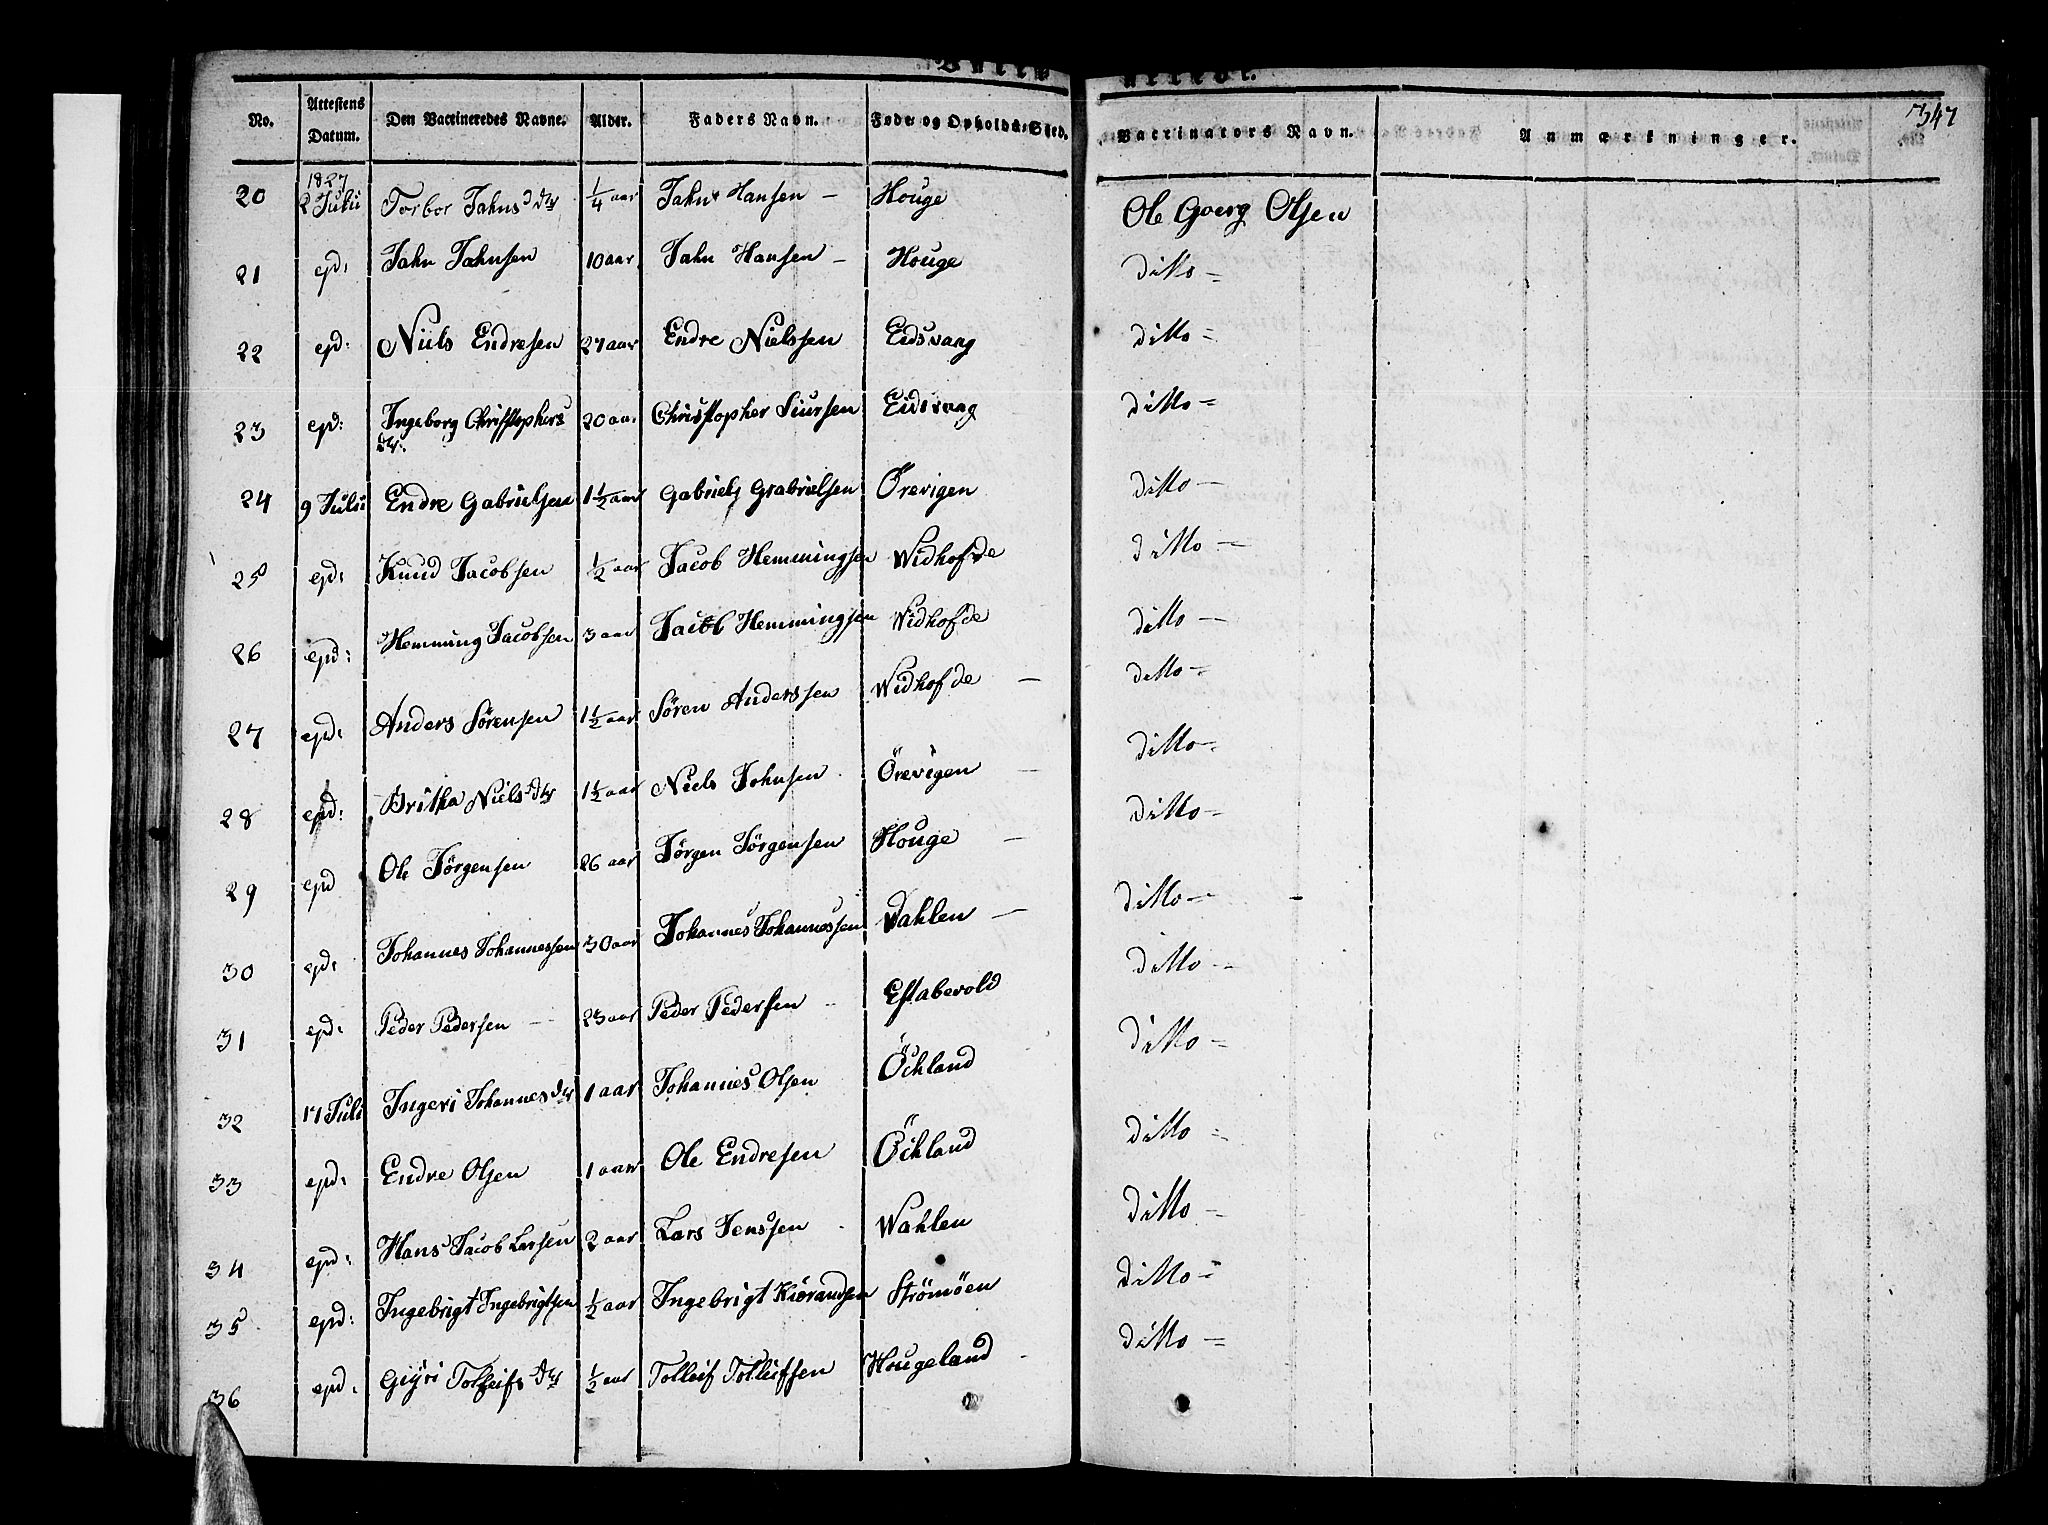 347
No. Attestens Datum. Den Vaccineredes Navne. Alder. Faders Navn. Føde- og Opholds-Sted. Vaccinators Navn. Anmærkninger.
1827
20 2 Julii Torbor Jahnsdtr ¼ aar Jahn Hansen – Houge Ole Goerg Olsen
21 ejd: Jahn Jahnsen 10 aar Jahn Hansen – Houge ditto –
22 ejd: Niels Endresen 27 aar Endre Nielssen Eidsvaag ditto –
23 ejd: Ingeborg Christophers 20 aar Christopher Siursen Eidsvaag ditto –
dtr:
24 9 Julii Endre Gabrielsen 1½ aar Gabriels Grabrielsen Örevigen ditto –
25 ejd: Knud Jacobsen ½ aar Jacob Hemmingsen Widhofde ditto –
26 ejd: Hemming Jacobsen 3 aar Jacob Hemmingsen Widhofde ditto –
27 ejd: Anders Sørensen 1½ aar Søren Anderssen Widhofde – ditto –
28 ejd: Britha Nielsdtr 1½ aar Niels Johnsen Örevigen – ditto –
29 ejd Ole Jörgensen 26 aar Jörgen Jörgensen Houge – ditto –
30 ejd: Johannes Johannessen 30 aar Johannes Johannessen Wahlen – ditto –
31 ejd: Peder Pedersen – 23 aar Peder Pedersen – Estabevold ditto –
32 17 Juli Ingeri Johannesdtr 1 aar Johannes Olsen Öchland ditto –
33 ejd: Endre Olsen 1 aar Ole Endresen Öchland ditto –
34 ejd: Hans Jacob Larsen 2 aar Lars Jenssen Wahlen ditto –
35 ejd: Ingebrigt Ingebrigtsen ½ aar Ingebrigt Kiørandsen Strömöen ditto –
36 ejd: Giyri Tolleifsdtr ½ aar Tolleif Tolleifsen Hougeland – ditto –